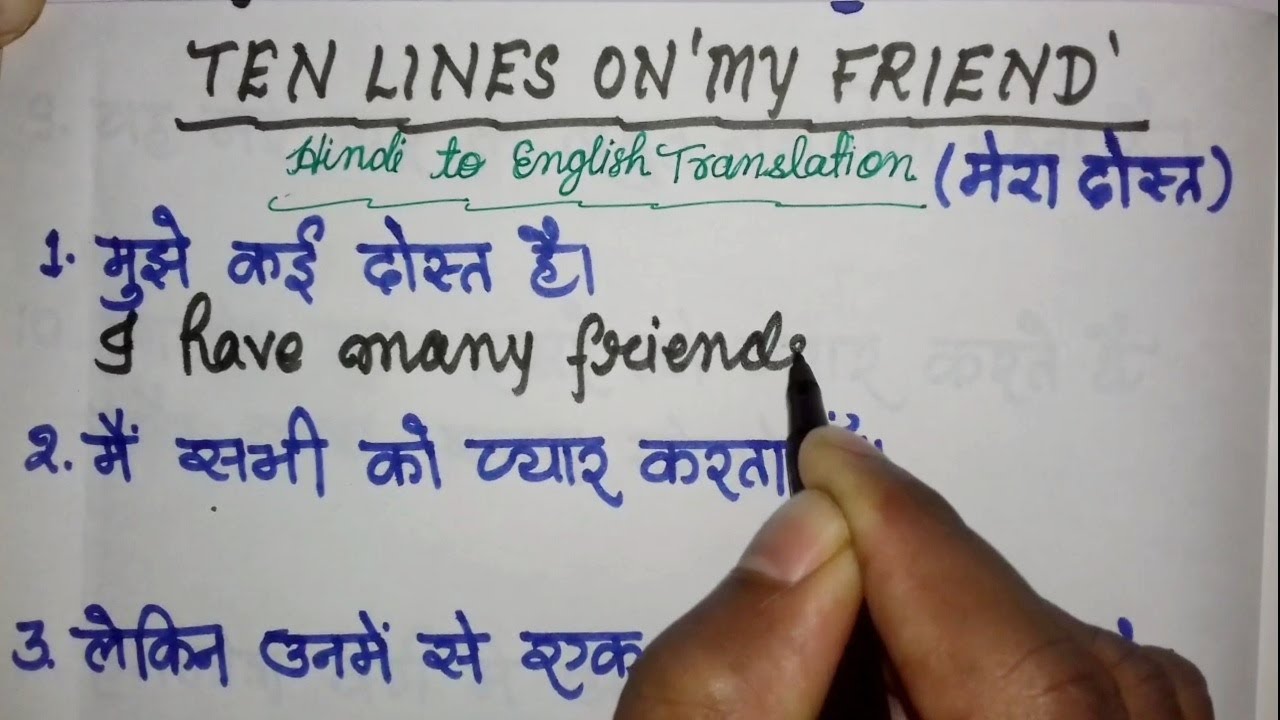 TEN LINES ON 'MY FRIEND'
Hindi to English Translation (मेरा दोस्त)
1. मुझे कई दोस्त है।
I have many friends
2. मैं सभी को प्यार करता
3. लेकिन उनमें से एक